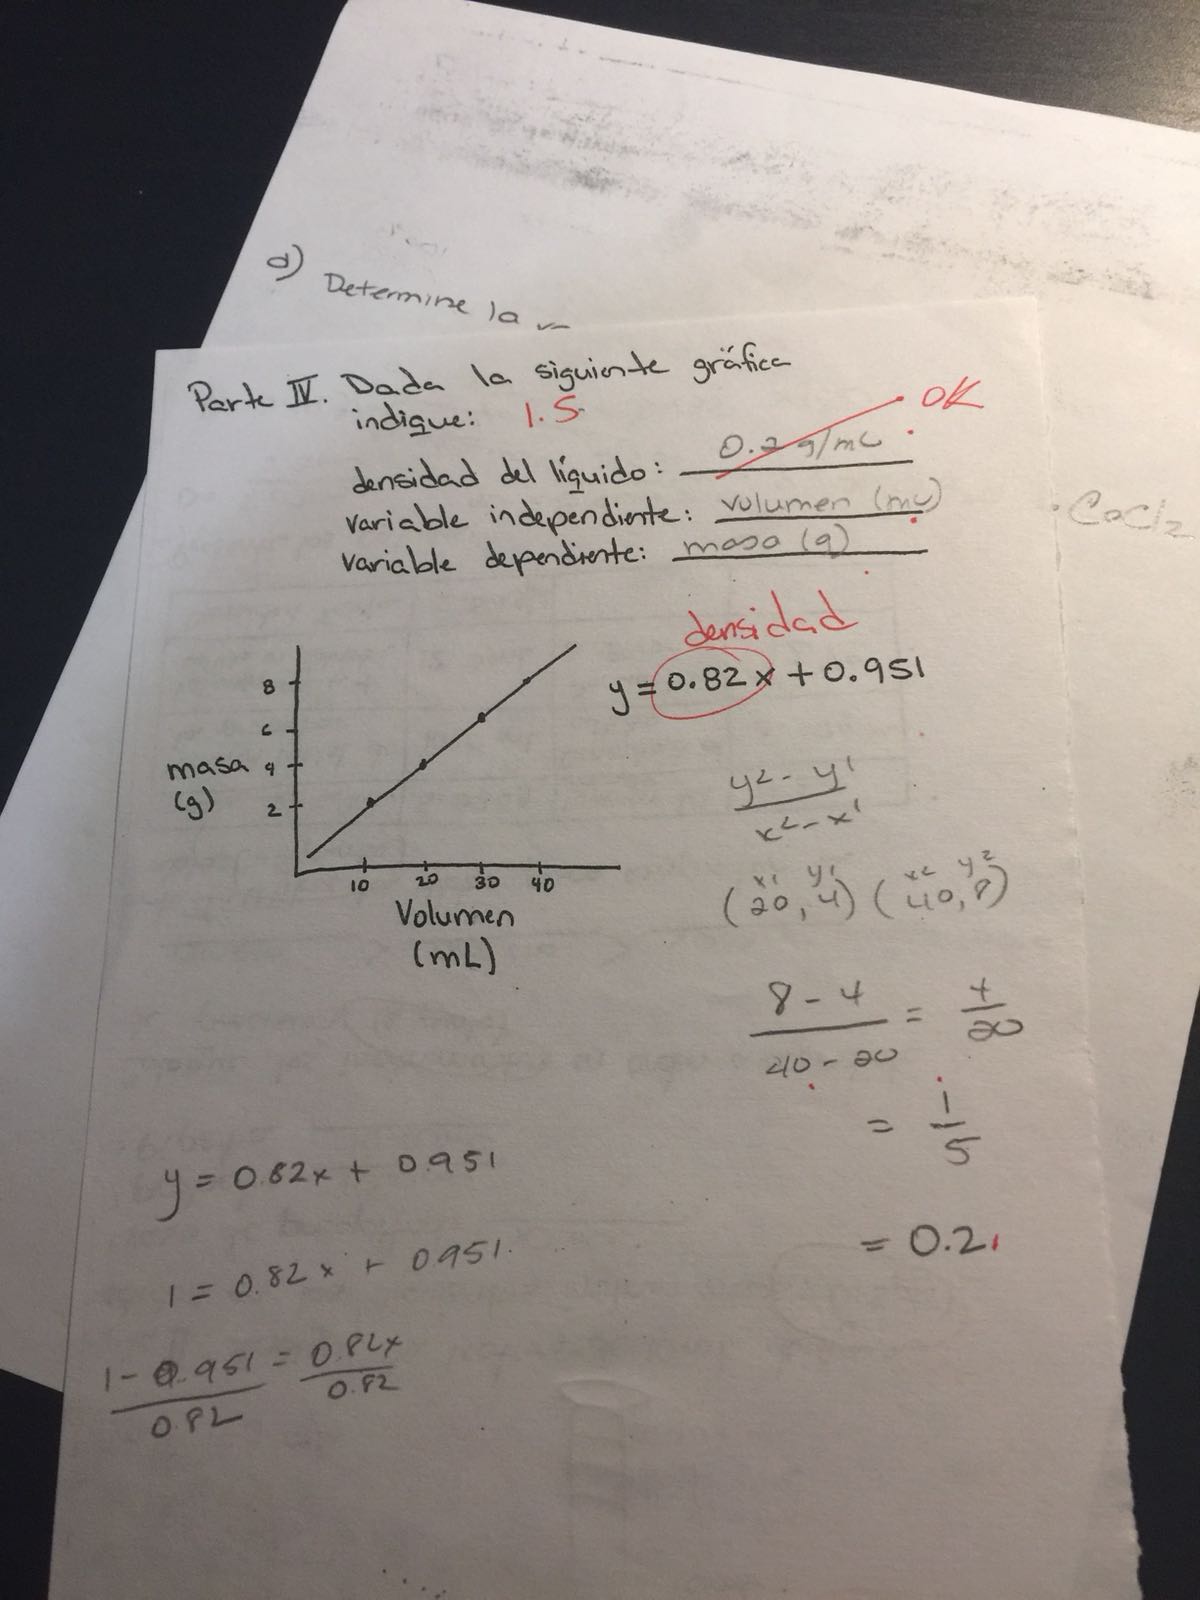 d) Determine la
Parte IV. Dada la siguiente gráfica
indique: 1.5
OK
densidad del líquido: 0.2 g/mL
variable independiente: volumen (mL)
variable dependiente: masa (g)
CoCl2
densidad
y = 0.82x + 0.951
8
6
4
2
masa
(g)
10 20 30 40
Volumen
(mL)
y2 - y1
x2 - x1
x1 y1 x2 y2
(20, 4) (40, 8)
8 - 4 = 4
40 - 20 20
= 1
5
= 0.2
y = 0.82x + 0.951
1 = 0.82x + 0.951
1 - 0.951 = 0.82x
0.82 0.82